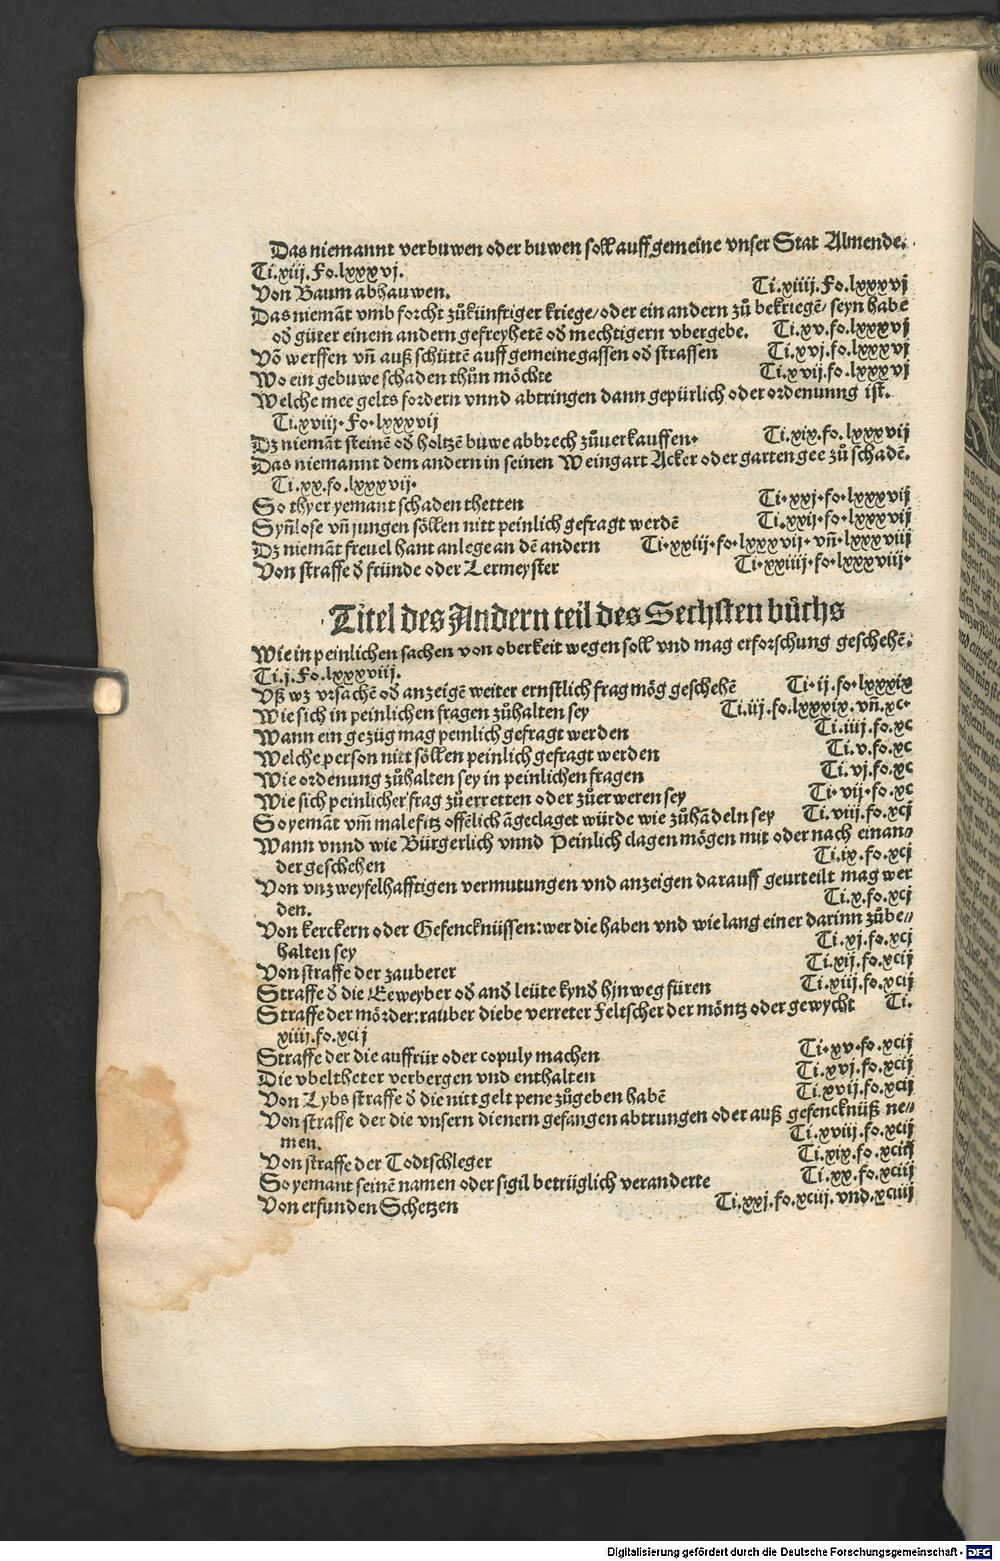 Das niemannt verbuwen oder buwen soll auff gemeine vnser Stat Almende.
Ti.xiij.Fo.lxxxvj.
Von Baum abhauwen. Ti.xiiij.Fo.lxxxvj
Das niemāt vmb forcht zůkünftiger kriege/oder ein andern zů bekriegē/seyn habe
od güter einem andern gefreyhetē od mechtigern vbergebe. Ti.xv.fo.lxxxvj
Vō werffen vn̄ auß schüttē auff gemeine gassen od strassen Ti.xvj.fo.lxxxvj
Wo ein gebuwe schaden thůn möchte Ti.xvij.fo.lxxxvj
Welche mee gelts fordern vnnd abtringen dann gepürlich oder ordenunng ist.
Ti.xviij.Fo.lxxxvij
Dz niemāt steinē od holtzē buwe abbrech zůuerkauffen. Ti.xix.fo.lxxxvij
Das niemannt dem andern in seinen Weingart Acker oder garten gee zů schadē.
Ti.xx.fo.lxxxvij.
So thyer yemant schaden thetten Ti.xxj.fo.lxxxvij
Syn̄lose vn̄ jungen söllen nitt peinlich gefragt werdē Ti.xxij.fo.lxxxvij
Dz niemāt freuel hant anlege an dē andern Ti.xxiij.fo.lxxxvij.vn̄.lxxxviij
Von straffe d fründe oder Lermeyster Ti.xxiiij.fo.lxxxviij.
Titel des Andern teil des Sechsten bůchs
Wie in peinlichen sachen von oberkeit wegen soll vnd mag erforschung geschehē.
Ti.j.Fo.lxxxviij.
Vß wz vrsachē od anzeigē weiter ernstlich frag mög geschehē Ti.ij.fo.lxxxix
Wie sich in peinlichen fragen zůhalten sey Ti.iij.fo.lxxxix.vn̄.xc.
Wann ein gezüg mag peinlich gefragt werden Ti.iiij.fo.xc
Welche person nitt söllen peinlich gefragt werden Ti.v.fo.xc
Wie ordenung zůhalten sey in peinlichen fragen Ti.vj.fo.xc
Wie sich peinlicher frag zů erretten oder zůerweren sey Ti.vij.fo.xc
So yemāt vm̄ malefitz offēlich āgeclaget würde wie zůhādeln sey Ti.viij.fo.xcj
Wann vnnd wie Bürgerlich vnnd Peinlich clagen mögen mit oder nach einan⸗
der geschehen Ti.ix.fo.xcj
Von vnzweyfelhafftigen vermutungen vnd anzeigen darauff geurteilt mag wer
den. Ti.x.fo.xcj
Von kerckern oder Gefencknüssen:wer die haben vnd wie lang einer darinn zůbe⸗
halten sey Ti.xj.fo.xcj
Von straffe der zauberer Ti.xij.fo.xcij
Straffe d die Eeweyber od and leüte kynd hinweg füren Ti.xiij.fo.xcij
Straffe der mörder:rauber diebe verreter Feltscher der möntz oder gewycht Ti.
xiiij.fo.xcij
Straffe der die auffrür oder copuly machen Ti.xv.fo.xcij
Die vbeltheter verbergen vnd enthalten Ti.xvj.fo.xcij
Von Lybs straffe d die nitt gelt pene zůgeben habē Ti.xvij.fo.xcij
Von straffe der die vnsern dienern gefangen abtrungen oder auß gefencknüß ne⸗
men. Ti.xviij.fo.xcij
Von straffe der Todtschleger Ti.xix.fo.xciij
So yemant seinē namen oder sigil betrüglich veranderte Ti.xx.fo.xciij
Von erfunden Schetzen Ti.xxj.fo.xciij.vnd.xciiij
Digitalisierung gefördert durch die Deutsche Forschungsgemeinschaft - DFG